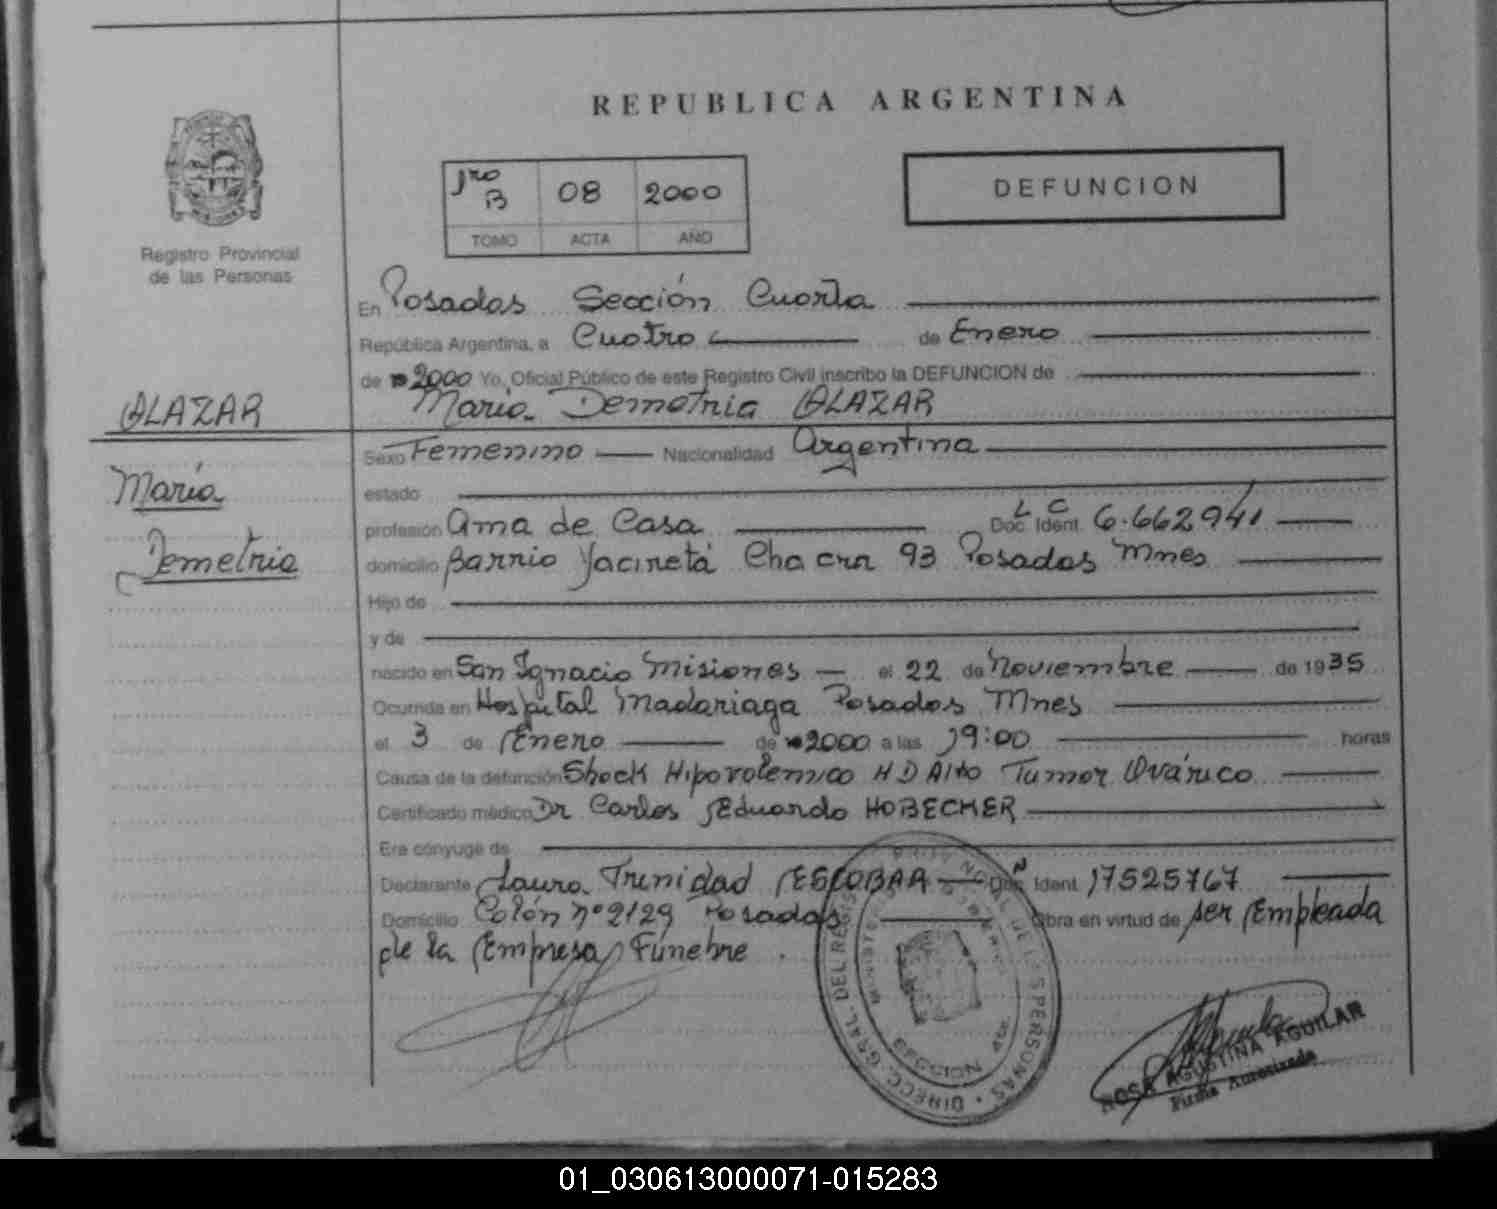 REPUBLICA ARGENTINA
Jro B 08 2000
TOMO ACTA AÑO
DEFUNCION
Registro Provincial
de las Personas
En Posadas Sección Cuarta
República Argentina, a Cuatro de Enero
de 2000 Yo, Oficial Público de este Registro Civil inscribo la DEFUNCION de
Maria Demetria ALAZAR
ALAZAR
María
Demetria
Sexo Femenino Nacionalidad Argentina
estado
profesión Ama de Casa Doc. Ident. L C 6.662941
domicilio Barrio Yaciretá Chacra 93 Posadas Mnes
Hijo de
y de
nacido en San Ignacio Misiones el 22 de Noviembre de 1935
Ocurrida en Hospital Madariaga Posadas Mnes
el 3 de Enero de 2000 a las 19:00 horas
Causa de la defunción Shock Hipovolemico H D Alto Tumor Ovárico
Certificado médico Dr Carlos Eduardo HOBECKER
Era cónyuge de
Declarante Laura Trinidad ESCOBAR Ident. 17525767
Domicilio Colón nº 2129 Posadas Obra en virtud de ser Empleada
de la Empresa Fúnebre
DIRECC. GRAL. DEL REGIST DE LAS PERSONAS
ROSA AGUSTINA AGUILAR
Firma Autorizada
01_030613000071-015283